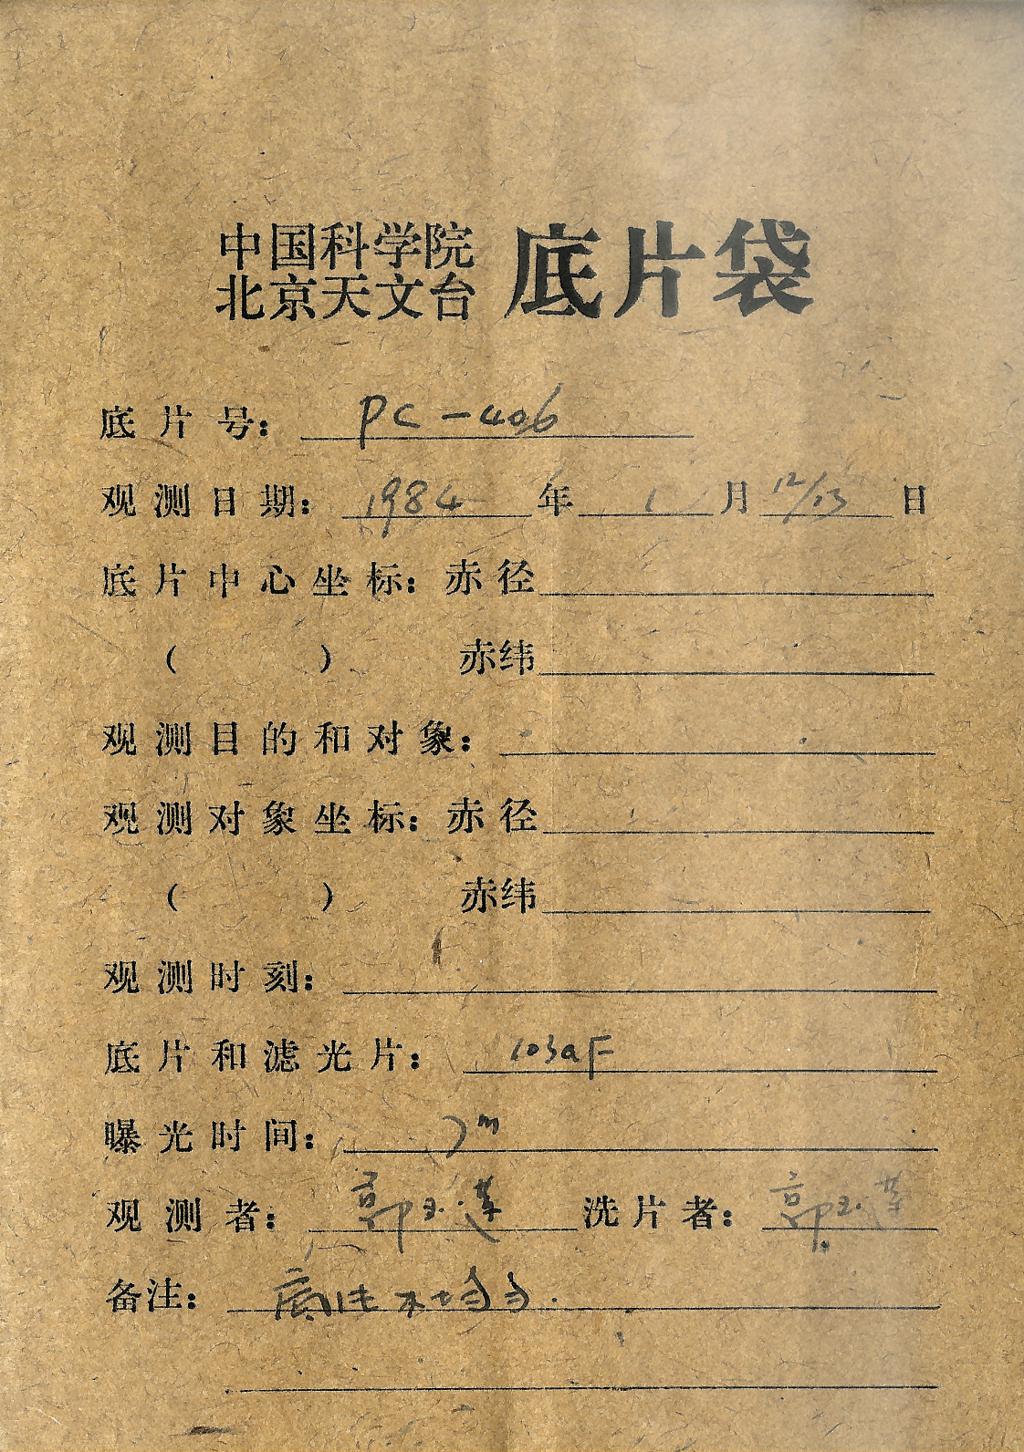 中国科学院
北京天文台
底片袋
底片号: PC-406
观测日期: 1984 年 1 月 12/13 日
底片中心坐标: 赤径
( ) 赤纬
观测目的和对象:
观测对象坐标: 赤径
( ) 赤纬
观测时刻:
底片和滤光片: 103aF
曝光时间: 7m
观测者: 郭玉莲 洗片者: 郭玉莲
备注: 不均匀.